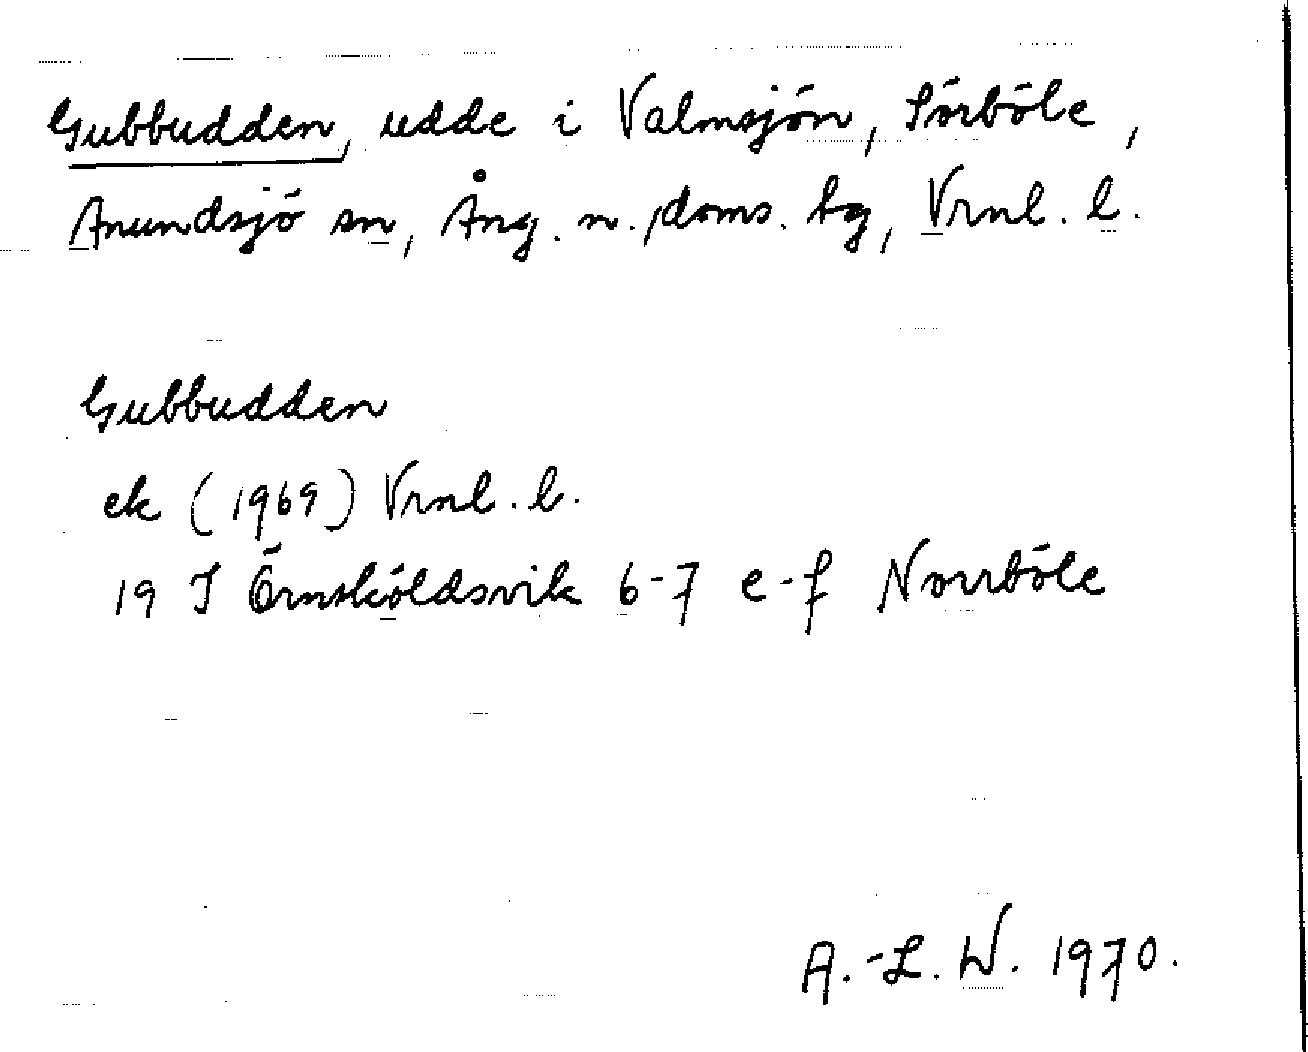 Gubbudden, udde i Valmsjön, Sörböle,
Anundsjö sn, Ång. n. doms. tg, Vrnl. l.
Gubbudden
ek (1969) Vrnl. l.
19 I Örnsköldsvik 6-7 e-f Norrböle
A.-L. W. 1970.